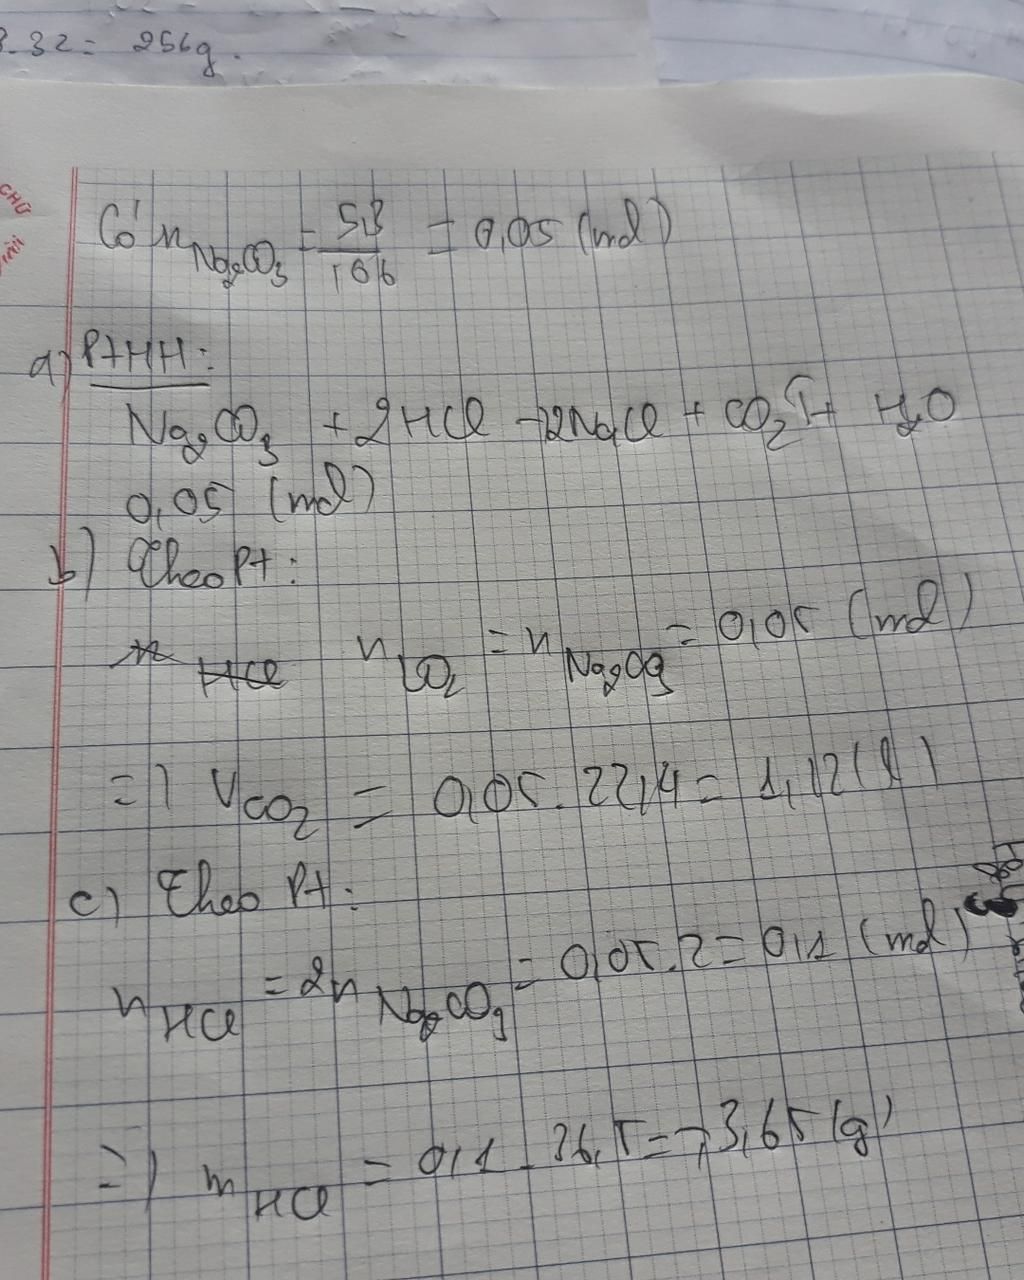 3.32 = 256g.
CHỮ
Có n Na2CO3 = 5,3/106 = 0,05 (mol)
a) PTHH:
Na2CO3 + 2HCl → 2NaCl + CO2↑ + H2O
0,05 (mol)
b) Theo Pt:
n HCl n CO2 = n Na2CO3 = 0,05 (mol)
=) V CO2 = 0,05 . 22,4 = 1,12 (l)
c) Theo Pt:
n HCl = 2n Na2CO3 = 0,05.2 = 0,1 (mol)
=) m HCl = 0,1 . 36,5 = 3,65 (g)